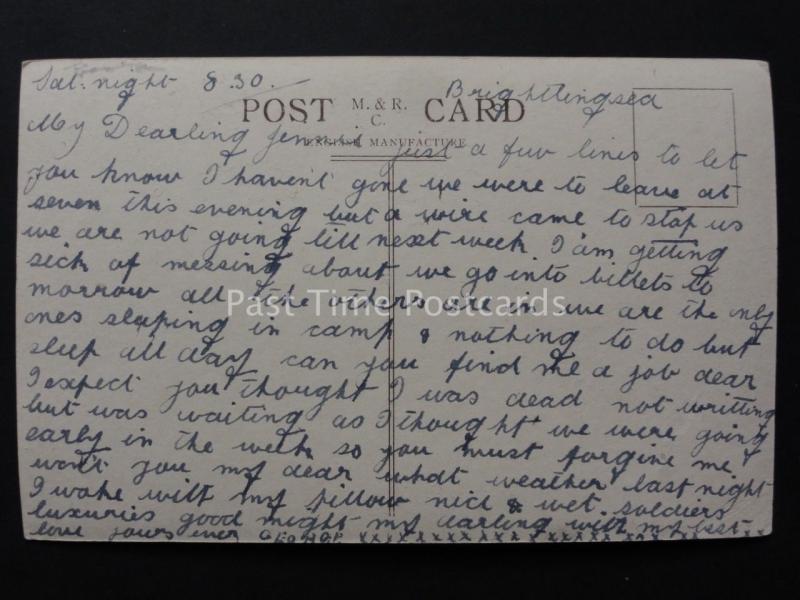 Sat. night 8.30. Brighttingsea
POST M. & R. C. CARD
ENGLISH MANUFACTURE
My Dearling Jennie just a fuw lines to let
you know I havent gone we were to leave at
seven this evening but a wire came to stop us
we are not going till next week I am getting
sick of messing about we go into billets to
morrow all the others are in we are the only
Past Time Postcards
ones sleaping in camp & nothing to do but
sleep all day can you find me a job dear
I expect you thought I was dead not writting
but was waiting as I thought we were going
early in the week so you must forgive me
won't you my dear what weather last night
I woke wilt my pillow nice & wet. soldiers
luxuries good night my darling with my best
love yours ever George xxxxxxxxxxxxxxxxxx